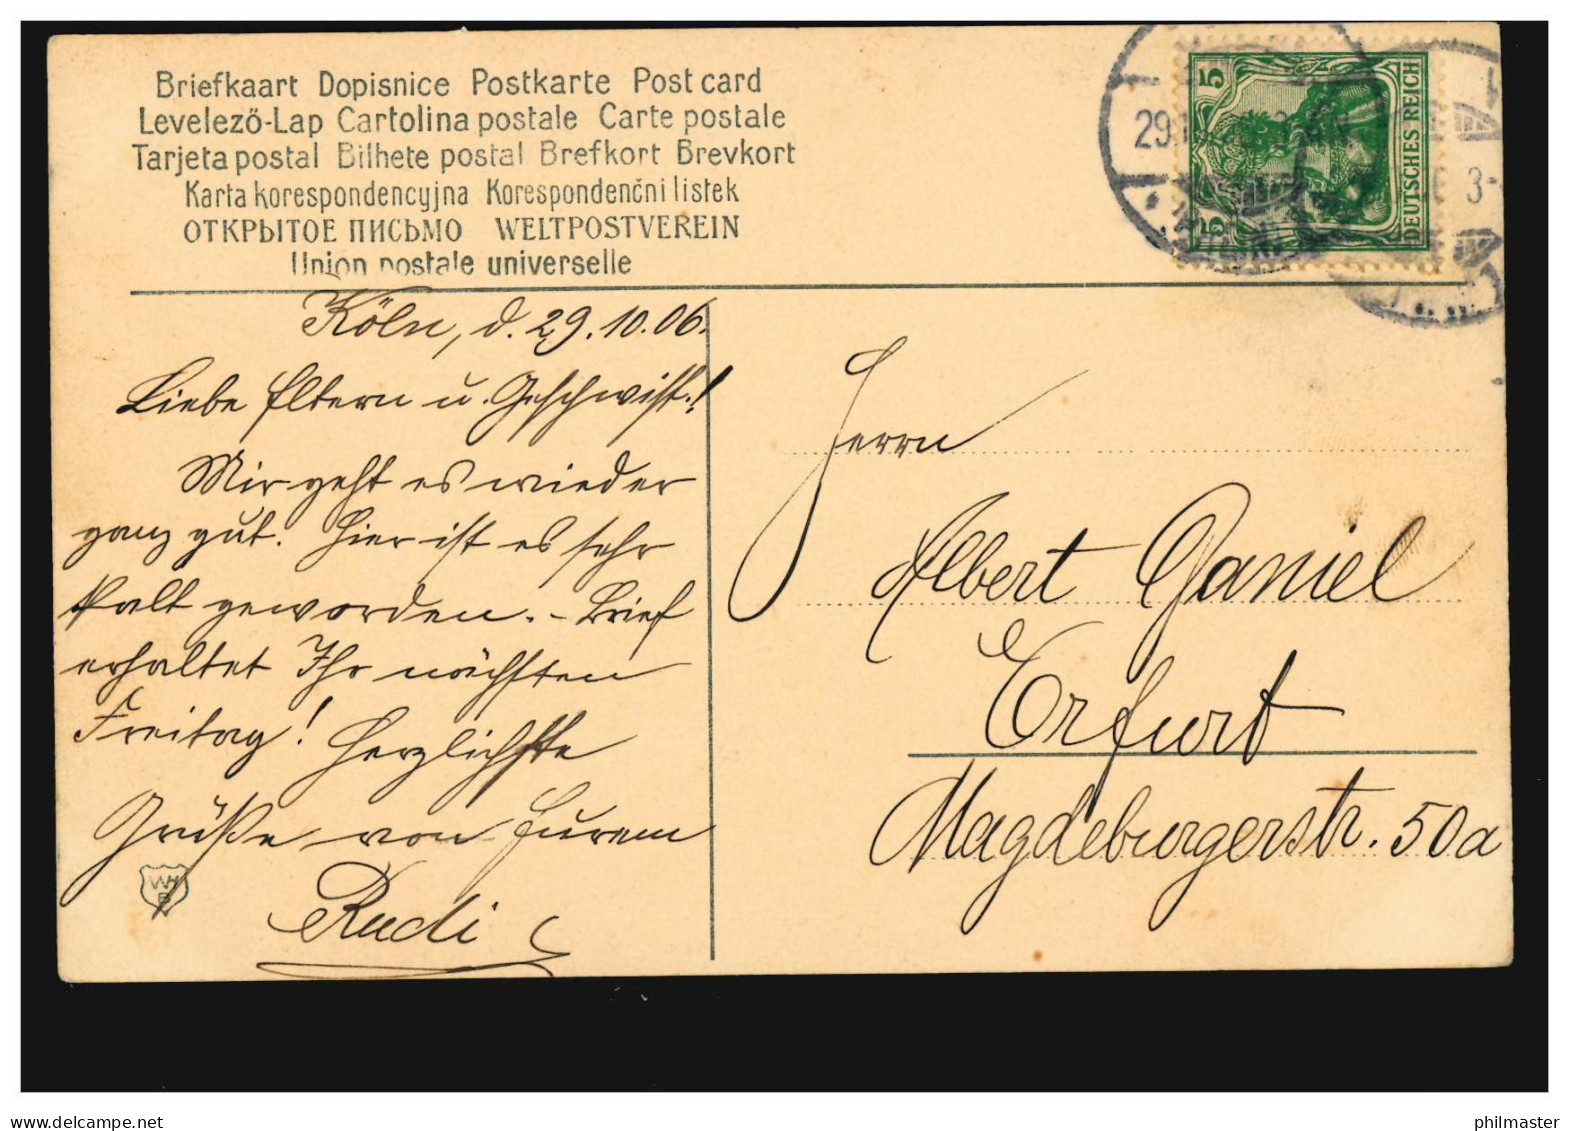 Briefkaart Dopisnice Postkarte Post card
Levelező-Lap Cartolina postale Carte postale
Tarjeta postal Bilhete postal Brefkort Brevkort
Karta korespondencyjna Korespondenčni listek
ОТКРЫТОЕ ПИСЬМО WELTPOSTVEREIN
Union postale universelle
5 5 DEUTSCHES REICH
29.1
3-
Köln, d. 29.10.06.
Liebe Eltern u. Geschwist.!
Mir geht es wieder
ganz gut. Hier ist es sehr
kalt geworden. – Brief
erhaltet Ihr nächsten
Freitag! Herzlichste
Grüße von Eurem
Rudi
WH
B
Herrn
Albert Daniel
Erfurt
Magdeburgerstr. 50a
www.delcampe.net
philmaster